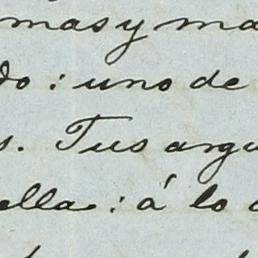 mas y ma
do: uno de
s. Tus argu
ella: á lo